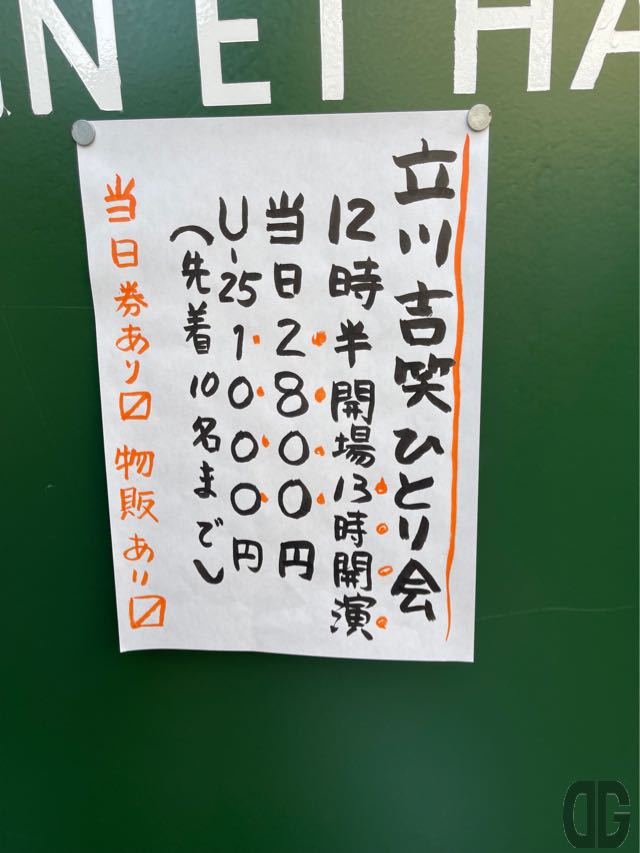 NET HA
立川吉笑ひとり会
12時半開場13時開演
当日2800円
U-25 1000円
(先着10名まで)
当日券あり☑ 物販あり☑
DG